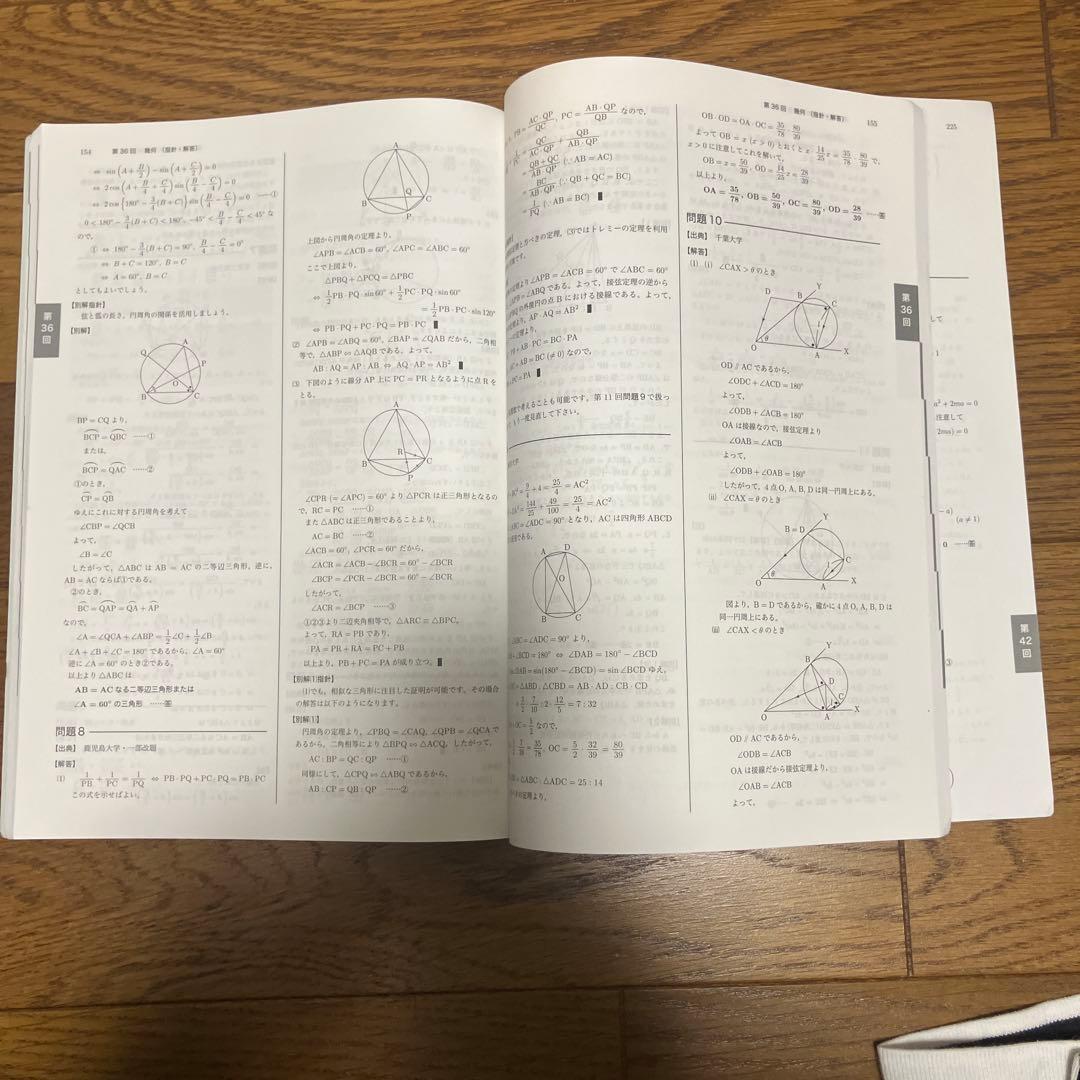 154 第36回 幾何 (指針・解答)
⇔ sin(A+B/2)−sin(A+C/2)=0
⇔ 2cos(A+B/4+C/4)sin(B/4−C/4)=0
⇔ 2cos{180°−3/4(B+C)}sin(B/4−C/4)=0 ……①
0<180°−3/4(B+C)<180°, −45°<B/4−C/4<45° な
ので,
① ⇔ 180°−3/4(B+C)=90°, B/4−C/4=0°
⇔ B+C=120°, B=C
⇔ A=60°, B=C
としてもよいでしょう。
【別解指針】
弦と弧の長さ, 円周角の関係を活用しましょう。
【別解】
A
Q
P
O
B
C
BP=CQ より,
BCP=QBC ……①
または,
BCP=QAC ……②
①のとき,
CP=QB
ゆえにこれに対する円周角を考えて
∠CBP=∠QCB
よって,
∠B=∠C
したがって, △ABC は AB = AC の二等辺三角形, 逆に,
AB=AC ならば①である。
②のとき,
BC=QAP=QA+AP
なので,
∠A=∠QCA+∠ABP=1/2∠C+1/2∠B
∠A+∠B+∠C=180° であるから, ∠A=60°
逆に∠A=60° のとき②である。
以上より△ABC は
AB=AC なる二等辺三角形または
∠A=60° の三角形 ……答
問題8
【出典】 鹿児島大学・一部改題
【解答】
(1) 1/PB+1/PC=1/PQ ⇔ PB·PQ+PC·PQ=PB·PC
この式を示せばよい。
第36回
A
Q
B
C
P
上図から円周角の定理より,
∠APB=∠ACB=60°, ∠APC=∠ABC=60°
ここで上図より,
△PBQ+△PCQ=△PBC
⇔ 1/2PB·PQ·sin60°+1/2PC·PQ·sin60°
=1/2PB·PC·sin120°
⇔ PB·PQ+PC·PQ=PB·PC
(2) ∠APB=∠ABQ=60°, ∠BAP=∠QAB だから, 二角相
等で, △ABP∽△AQBである。よって,
AB:AQ=AP:AB ⇔ AQ·AP=AB²
(3) 下図のように線分 AP 上に PC=PR となるように点 R を
とる。
A
R
B
C
P
∠CPR(=∠APC)=60° より△PCRは正三角形となるの
で, RC=PC ……①
また△ABCは正三角形であることより,
AC=BC ……②
∠ACB=60°, ∠PCR=60° だから,
∠ACR=∠ACB−∠BCR=60°−∠BCR
∠BCP=∠PCR−∠BCR=60°−∠BCR
したがって,
∠ACR=∠BCP ……③
①②③より二辺夾角相等で, △ARC≡△BPC,
よって, RA=PB であり,
PA=PR+RA=PC+PB
以上より, PB+PC=PA が成り立つ。
【別解1指針】
(1)でも, 相似な三角形に注目した証明が可能です。その場合
の解答は以下のようになります。
【別解1】
円周角の定理より, ∠PBQ=∠CAQ, ∠QPB=∠QCAで
あるから, 二角相等により△BPQ∽△ACQ, したがって,
AC:BP=QC:QP ……①
同様にして, △CPQ∽△ABQ であるから,
AB:CP=QB:QP ……②
PB=AC·QP/QC, PC=AB·QP/QB なので,
QC/AC·QP+QB/AB·QP
=QB+QC/AB·QP (∵AB=AC)
BC/AB·QP (∵QB+QC=BC)
1/PQ (∵AB=BC)
定理と方べきの定理, (3)ではトレミーの定理を利用
より∠APB=∠ACB=60° で∠ABC=60°
∠APB=∠ABQ である。よって, 接弦定理の逆から
の外接円の点Bにおける接線である。よって,
より, AP·AQ=AB²
より,
PB+AB·PC=BC·PA
AC=AB=BC(≠0)なので,
PC=PA
で考えることも可能です。第11回問題9で扱っ
もう一度見直して下さい。
9/4+4=25/4=AC²
144/25+49/100=25/4=AC²
∠ADC=90° となり, ACは四角形ABCD
である。
A
D
O
B
C
∠ABC=∠ADC=90° より,
∠BCD=180° ⇔ ∠DAB=180°−∠BCD
sin∠DAB=sin(180°−∠BCD)=sin∠BCD ゆえ,
OC=△ABD:△CBD=AB·AD:CB·CD
=7:32
なので,
35/78, OC=5/2·32/39=80/39
△ABC:△ADC=25:14
の定理より,
第36回 幾何 (指針・解答) 155
OB·OD=OA·OC=35/78·80/39
よって OB=x (x>0) とおくと x·14/25x=35/78·80/39 で,
x>0 に注意してこれを解いて,
OB=x=50/39, OD=14/25x=28/39
以上より,
OA=35/78, OB=50/39, OC=80/39, OD=28/39 ……答
問題10
【出典】 千葉大学
【解答】
(1) (i) ∠CAX>θのとき
Y
D
B
C
O
θ
A
X
OD∥ACであるから,
∠ODC+∠ACD=180°
よって,
∠ODB+∠ACB=180°
OAは接線なので, 接弦定理より
∠OAB=∠ACB
よって,
∠ODB+∠OAB=180°
したがって, 4点O, A, B, Dは同一円周上にある。
(ii) ∠CAX=θのとき
Y
B=D
C
O
θ
A
X
図より, B=Dであるから, 確かに4点O, A, B, Dは
同一円周上にある。
(iii) ∠CAX<θのとき
Y
B
D
C
O
A
X
OD∥ACであるから,
∠ODB=∠ACB
OAは接線だから接弦定理より,
∠OAB=∠ACB
よって,
第36回
225
a²+2ma=0
注意して
2ma)=0
(a≠1)
0 ……答
第42回